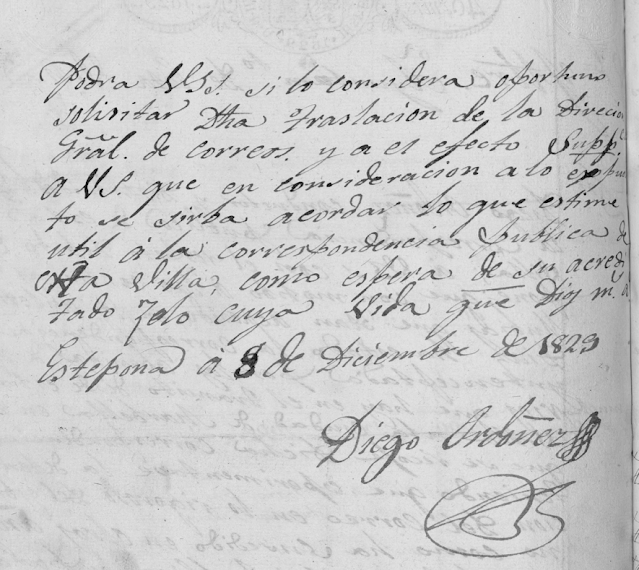 Podra VSS. si lo considera oportuno
solisitar Dha traslacion de la Direcion
Gräl. de correos. y a el efecto Suppca
A VS. que en consideracion a lo expues
to se sirba acordar lo que estime
util á la correspondencia Publica de
esta Villa, como espera de su acredi
tado Zelo cuya Vida gue Dios m. a
Estepona á 8 de Diciembre de 1829
Diego Ordoñez